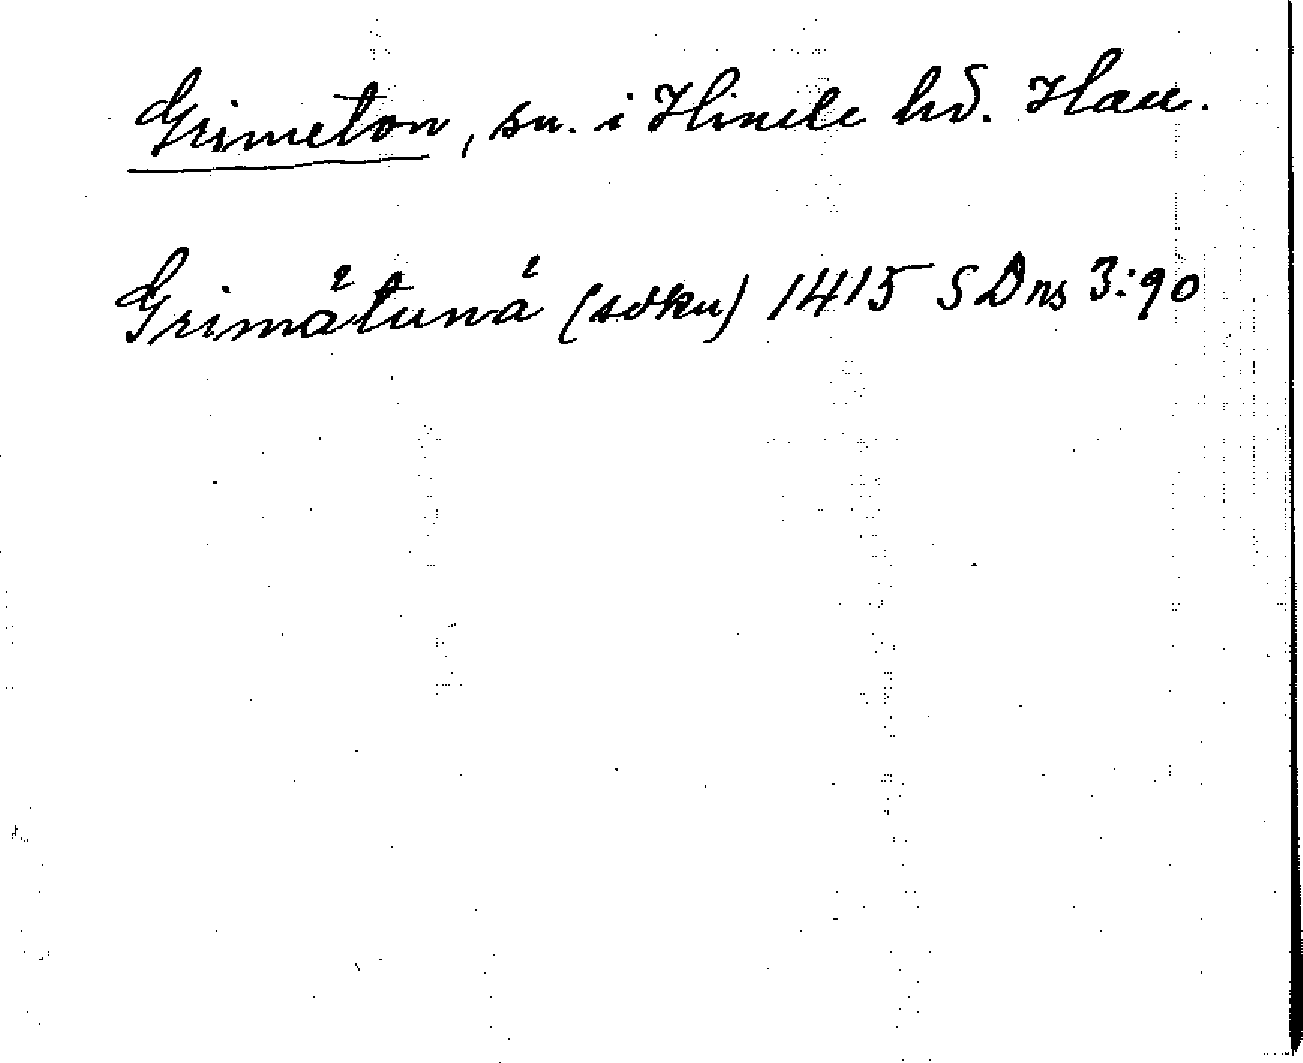 Grimeton, sn. i Himle hd. Hall.
Grimåtunå (sokn) 1415 SDns 3:90